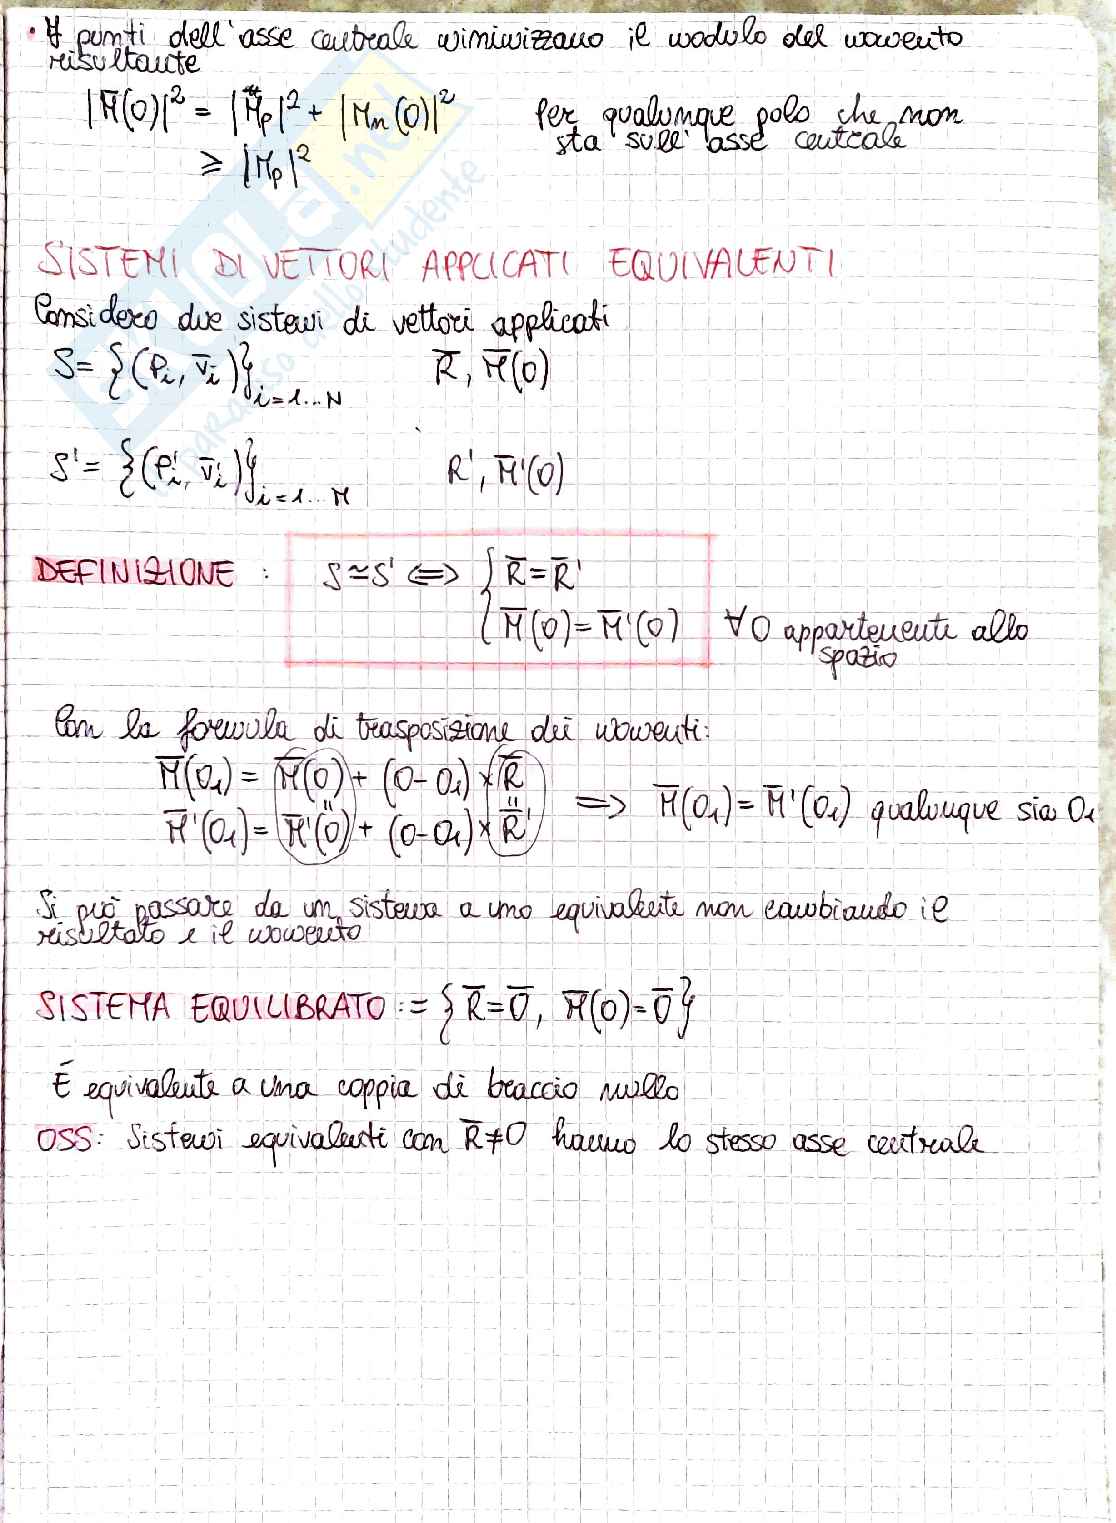 • ∀ punti dell'asse centrale minimizzano il modulo del momento
risultante
|M̅(O)|² = |M̅p|² + |Mn(O)|² Per qualunque polo che non
≥ |Mp|² sta sull'asse centrale
SISTEMI DI VETTORI APPLICATI EQUIVALENTI
Considero due sistemi di vettori applicati
S = {(Pi, v̅i)}i=1...N R̅, M̅(O)
S' = {(Pi', v̅i')}i=1...M R', M̅'(O)
DEFINIZIONE : S ≃ S' ⟺ { R̅ = R̅'
M̅(O) = M̅'(O) ∀ O appartenente allo
spazio
Con la formula di trasposizione dei momenti:
M̅(O₁) = M̅(O) + (O-O₁) × R̅
M̅'(O₁) = M̅'(O) + (O-O₁) × R̅' ⟹ M̅(O₁) = M̅'(O₁) qualunque sia O₁
Si può passare da un sistema a uno equivalente non cambiando il
risultato e il momento
SISTEMA EQUILIBRATO := { R̅ = 0̅, M̅(O) = 0̅ }
É equivalente a una coppia di braccio nullo
OSS: Sistemi equivalenti con R̅ ≠ 0 hanno lo stesso asse centrale